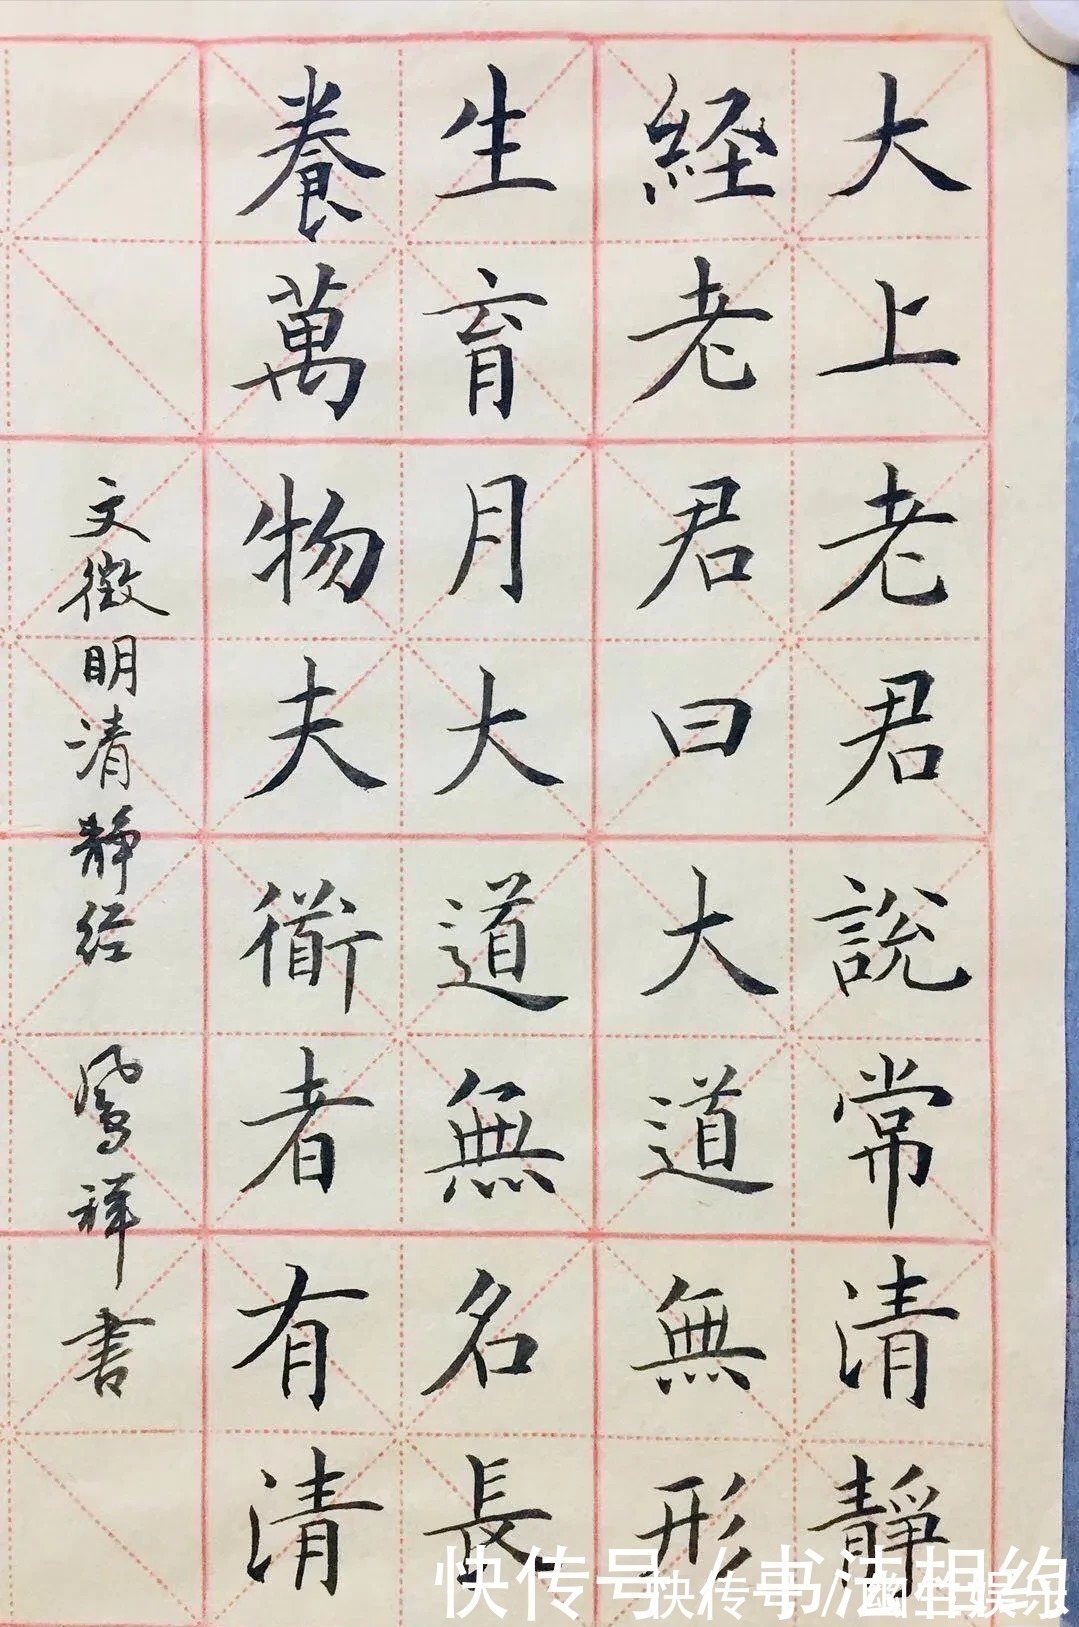 大上老君說常清靜
経老君曰大道無形
生育月大道無名長
養萬物夫衜者有清
文徵明清静经 鳳祥書
快传号 / 书法相约
快传号 /